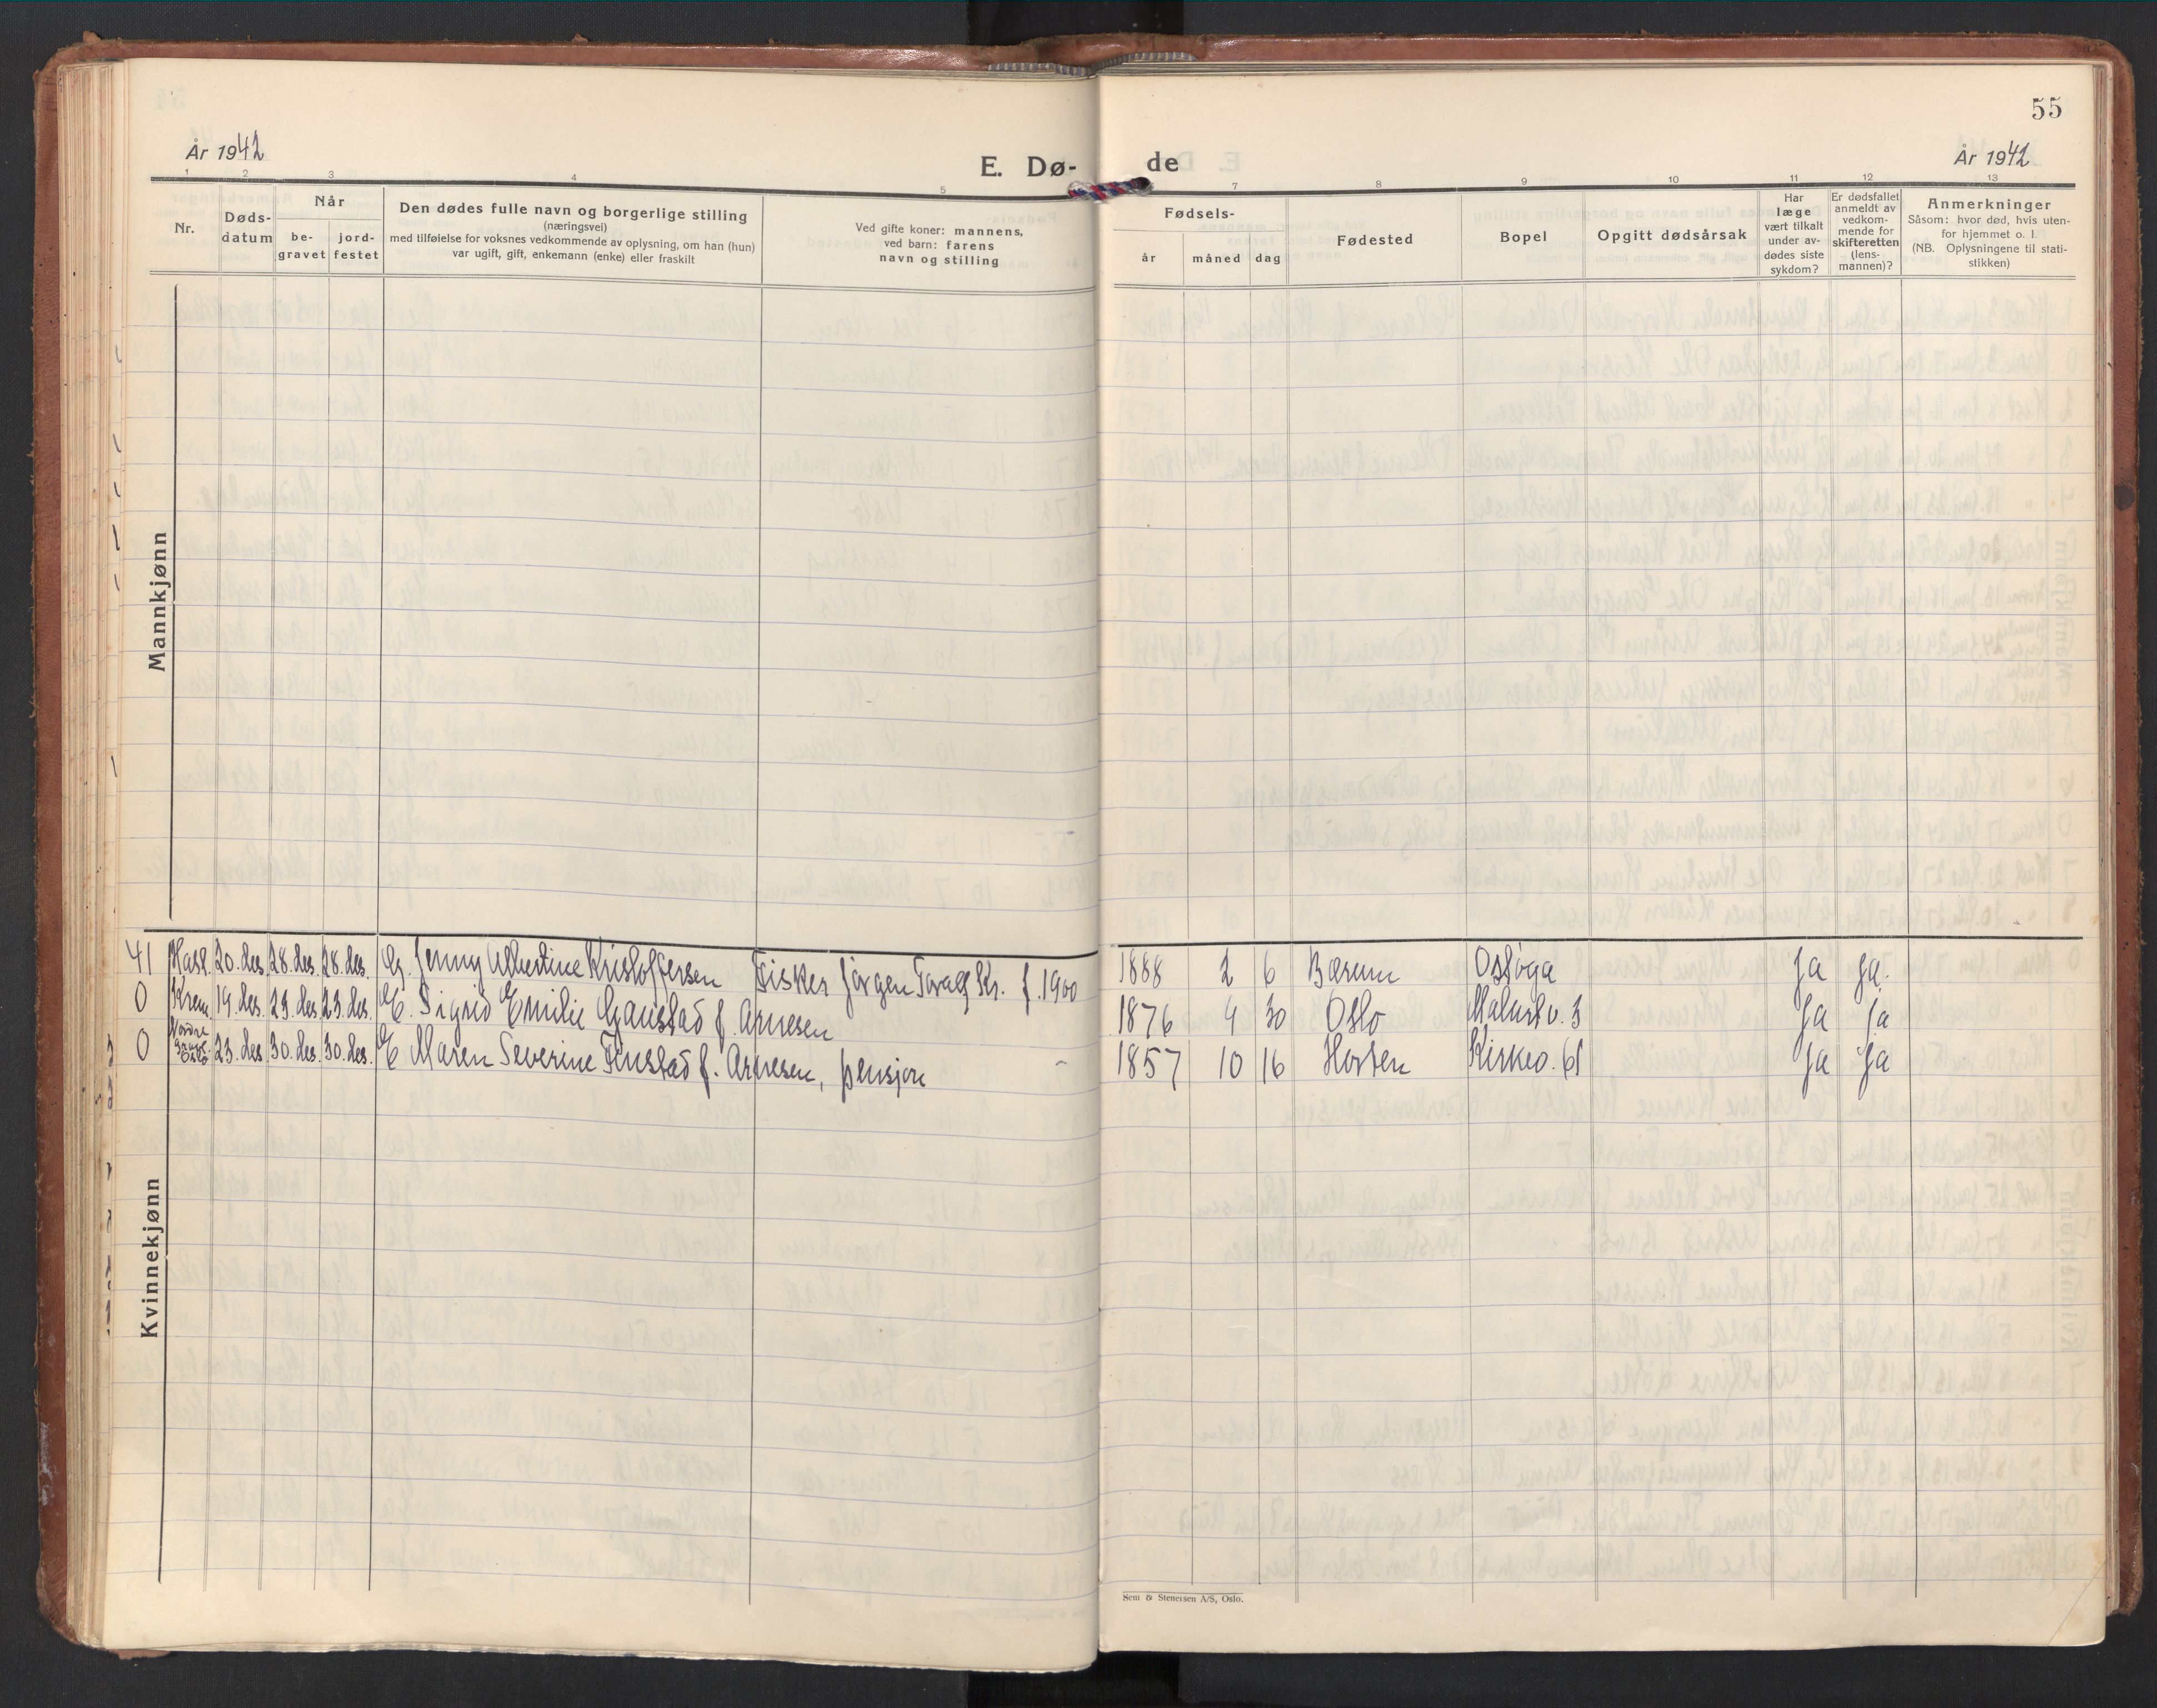 55
År 1942
E. Dø-
de
År 1942
1 2 3 4 5 7 8 9 10 11 12 13
Nr.
Døds-
datum
Når
be-
gravet
jord-
festet
Den dødes fulle navn og borgerlige stilling
(næringsvei)
med tilføielse for voksnes vedkommende av oplysning, om han (hun)
var ugift, gift, enkemann (enke) eller fraskilt
Ved gifte koner: mannens,
ved barn: farens
navn og stilling
Fødsels-
år måned dag
Fødested
Bopel
Opgitt dødsårsak
Har
læge
vært tilkalt
under av-
dødes siste
sykdom?
Er dødsfallet
anmeldt av
vedkom-
mende for
skifteretten
(lens-
mannen)?
Anmerkninger
Såsom: hvor død, hvis uten-
for hjemmet o. l.
(NB. Oplysningene til stati-
stikken)
Mannkjønn
Kvinnekjønn
41 Hasl. 20. des. 28. des. 28. des. G. Jenny Albertine Kristoffersen Fisker Jørgen Kr. f. 1900 1888 2 6 Bærum Ostøya Ja Ja.
0 Krem. 19. des. 23. des. 23. des. E. Sigrid Emilie Gaustad f. Arnesen 1876 4 30 Oslo 3 Ja Ja
0 Nordre
Oslo 23. des. 30. des. 30. des. E Maren Severine Finstad f. Arnesen, pensjon - 1857 10 16 Horten Kirkev. 61 Ja Ja
Sem & Stenersen A/S, Oslo.